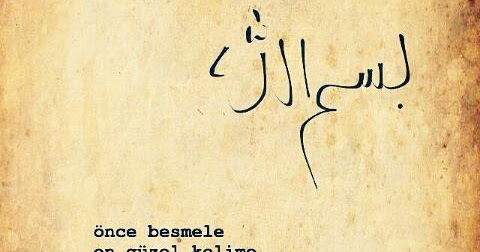 بسم الله
önce besmele
en güzel kelime